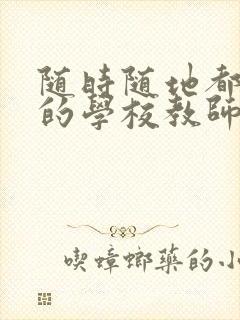 随時随地都
的學校教師
喫蟑螂藥的小